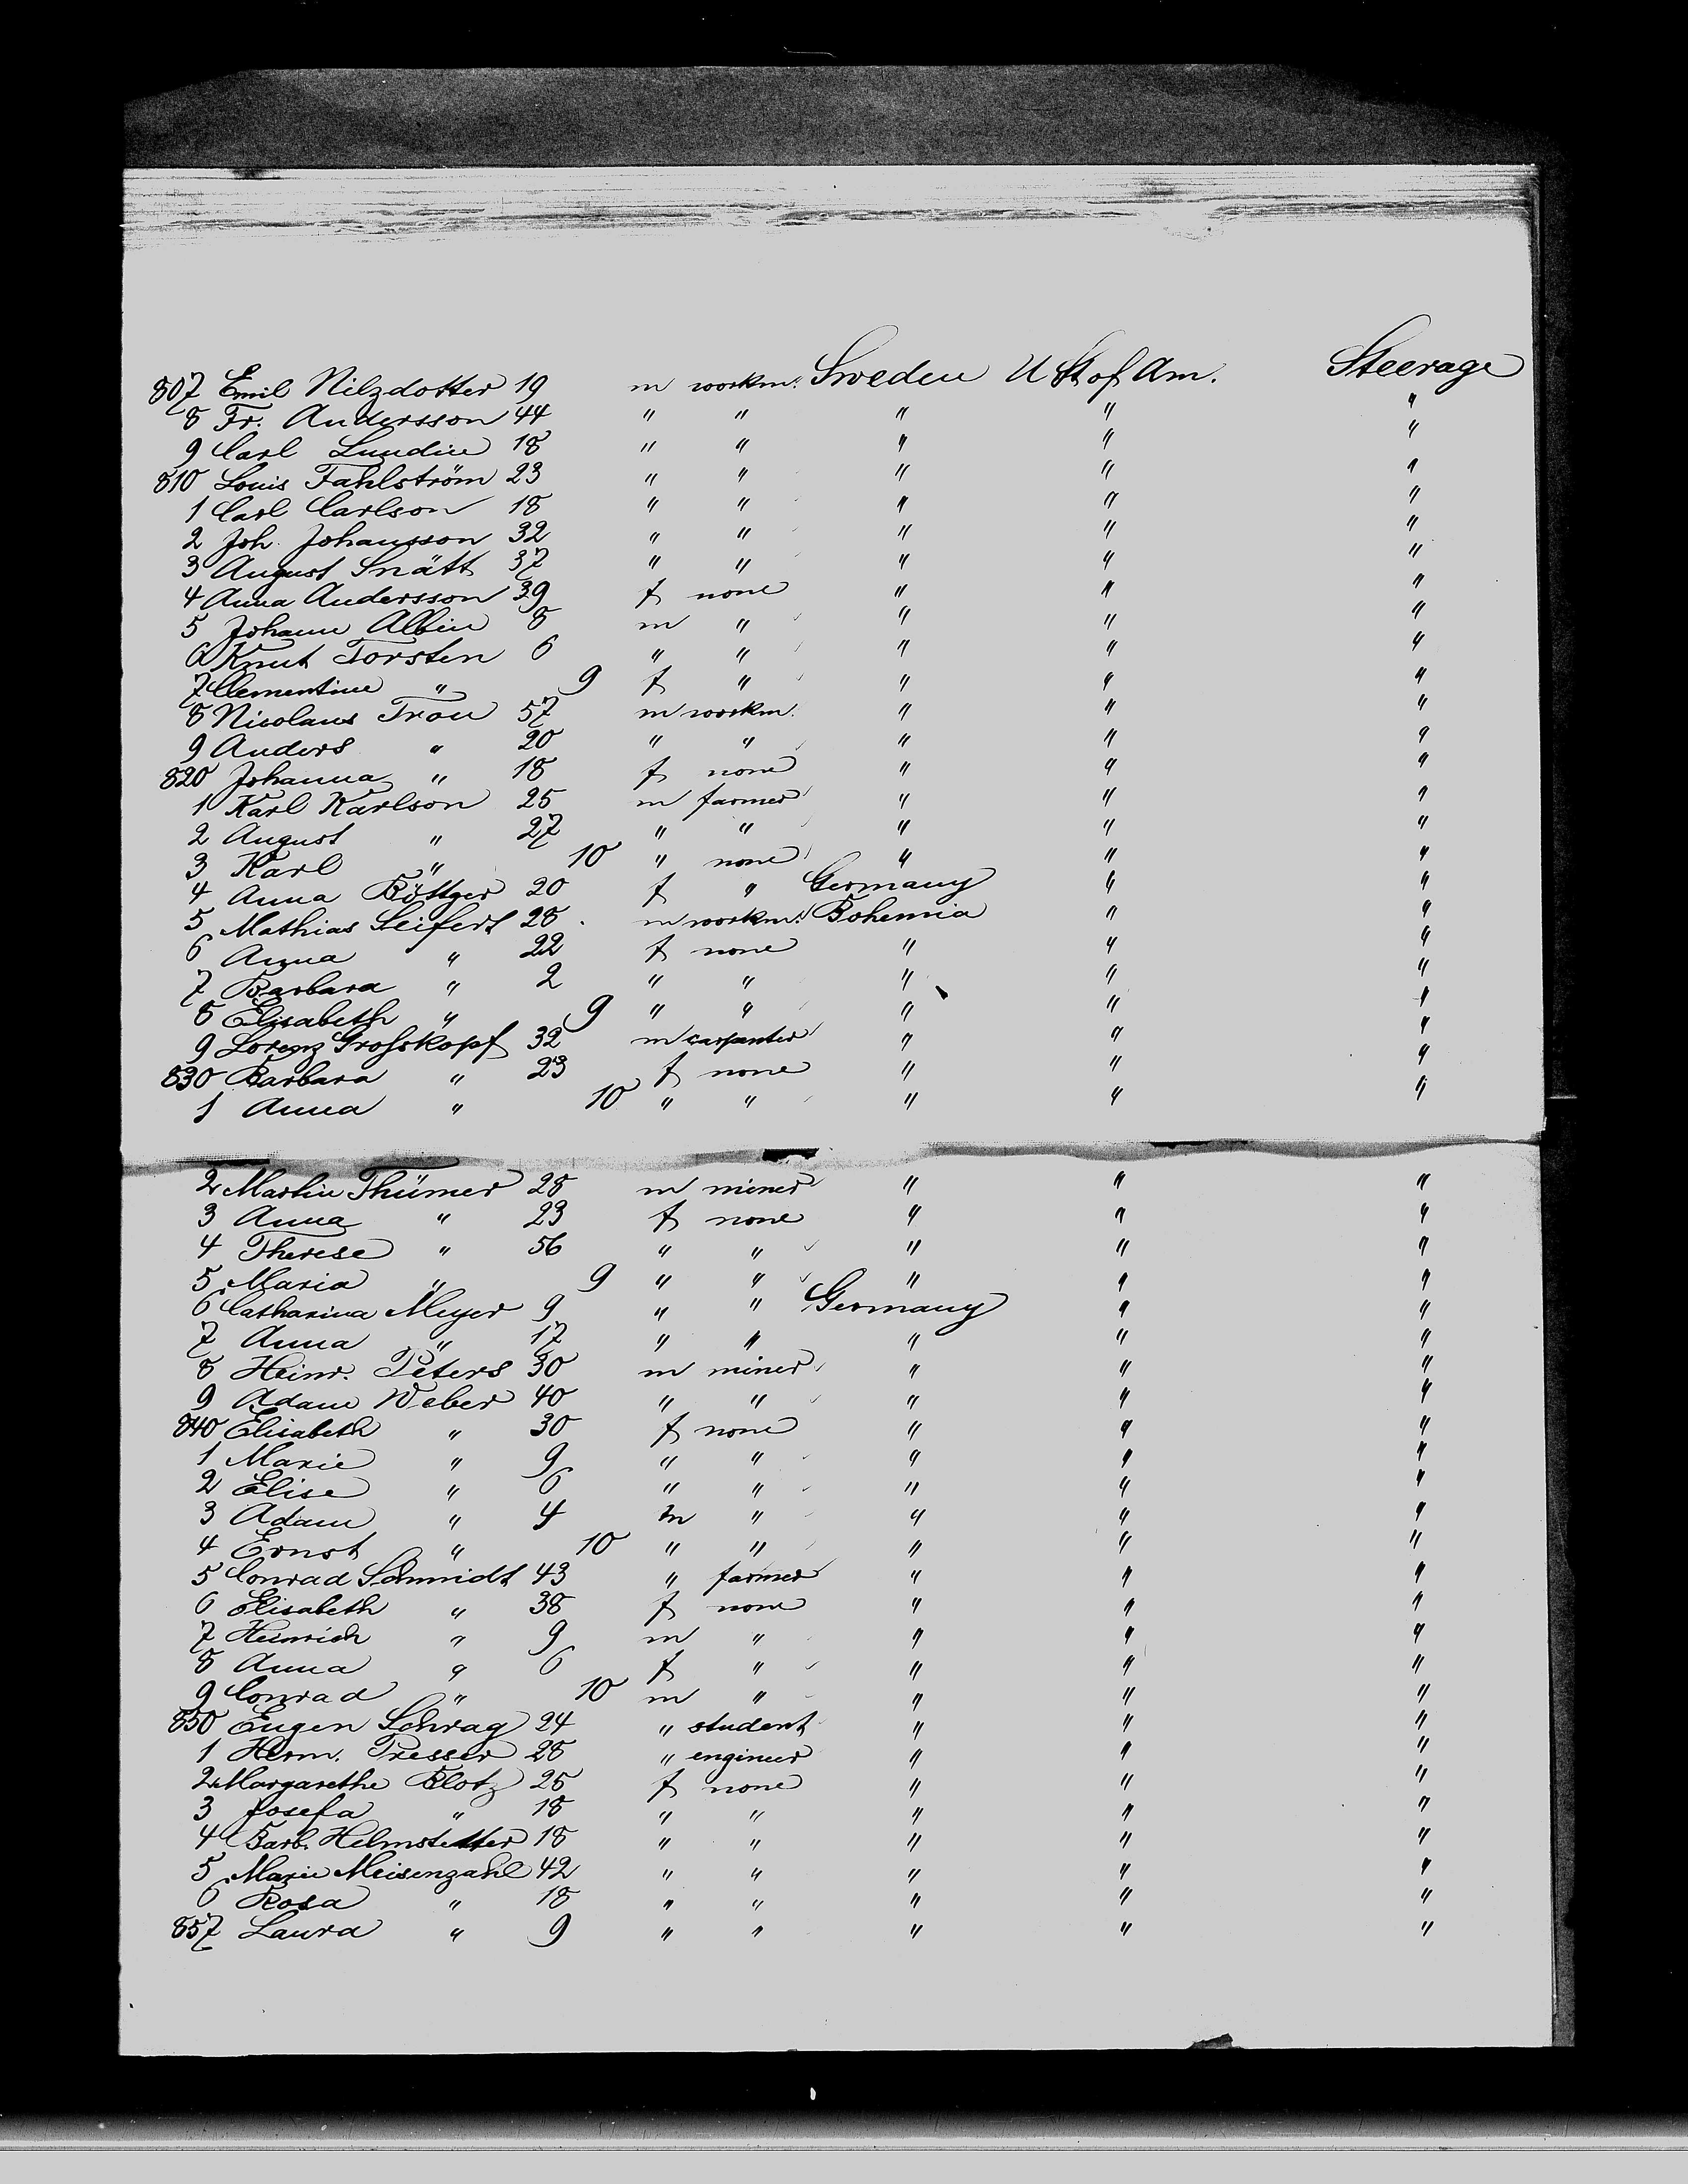 807 Emil Nilzdotter 19 m workm. Sweden U St of Am. Steerage
8 Fr. Andersson 44 " " " " "
9 Carl Lundin 18 " " " " "
810 Louis Fahlström 23 " " " " "
1 Carl Carlson 18 " " " " "
2 Joh. Johansson 32 " " " " "
3 August Snätt 37 " " " " "
4 Anna Andersson 39 f none " " "
5 Johann Albin 8 m " " " "
6 Knut Torsten 6 " " " " "
7 Clementine " 9 f " " " "
8 Nicolaus Trou 57 m workm. " " "
9 Anders " 20 " " " " "
820 Johanna " 18 f none " " "
1 Karl Karlson 25 m farmer " " "
2 August " 27 " " " " "
3 Karl " 10 " none " " "
4 Anna Böttger 20 f " Germany " "
5 Mathias Seifert 28 m workm. Bohemia " "
6 Anna " 22 f none " " "
7 Barbara " 2 " " " " "
8 Elisabeth " 9 " " " " "
9 Lorenz Grosskopf 32 m carpenter " " "
830 Barbara " 23 f none " " "
1 Anna " 10 " " " " "
2 Martin Thümer 28 m miner " " "
3 Anna " 23 f none " " "
4 Therese " 56 " " " " "
5 Maria " 9 " " " " "
6 Catharina Meyer 9 " " Germany " "
7 Anna " 17 " " " " "
8 Heinr. Peters 30 m miner " " "
9 Adam Weber 40 " " " " "
840 Elisabeth " 30 f none " " "
1 Marie " 9 " " " " "
2 Elise " 6 " " " " "
3 Adam " 4 m " " " "
4 Ernst " 10 " " " " "
5 Conrad Schmidt 43 " farmer " " "
6 Elisabeth " 38 f none " " "
7 Heinrich " 9 m " " " "
8 Anna " 6 f " " " "
9 Conrad " 10 m " " " "
850 Eugen Schrag 24 " student " " "
1 Herm. Presser 28 " engineer " " "
2 Margarethe Blotz 25 f none " " "
3 Josefa " 18 " " " " "
4 Barb. Helmstetter 18 " " " " "
5 Marie Meisenzahl 42 " " " " "
6 Rosa " 18 " " " " "
857 Laura " 9 " " " " "